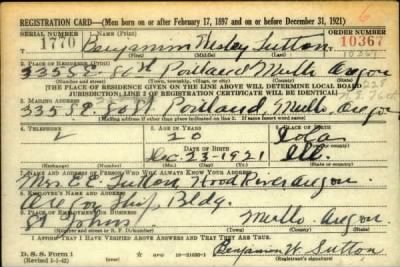 REGISTRATION CARD—(Men born on or after February 17, 1897 and on or before December 31, 1921)
SERIAL NUMBER 1. NAME (Print) ORDER NUMBER
1770 Benjamin Wesley Sutton 10367
(First) (Middle) (Last)
2. PLACE OF RESIDENCE (Print)
335 S.E. 80th Portland Multo Oregon
(Number and street) (Town, township, village, or city) (County) (State)
[THE PLACE OF RESIDENCE GIVEN ON THE LINE ABOVE WILL DETERMINE LOCAL BOARD
JURISDICTION; LINE 2 OF REGISTRATION CERTIFICATE WILL BE IDENTICAL]
3. MAILING ADDRESS
335 S.E. 80 St Portland, Multo, Oregon
[Mailing address if other than place indicated on line 2. If same insert word same]
4. TELEPHONE 5. AGE IN YEARS 6. PLACE OF BIRTH
20
DATE OF BIRTH
Dec. 23-1921
(Exchange) (Number) (Mo.) (Day) (Yr.) (State or country)
7. NAME AND ADDRESS OF PERSON WHO WILL ALWAYS KNOW YOUR ADDRESS
Mrs Sutton Hood River Oregon
8. EMPLOYER'S NAME AND ADDRESS
Oregon Ship Bldg.
9. PLACE OF EMPLOYMENT OR BUSINESS
St Johns Multo Oregon
(Number and street or R. F. D. number) (Town) (County) (State)
I AFFIRM THAT I HAVE VERIFIED ABOVE ANSWERS AND THAT THEY ARE TRUE.
D. S. S. Form 1
(Revised 1-1-42) (over) Benjamin W. Sutton